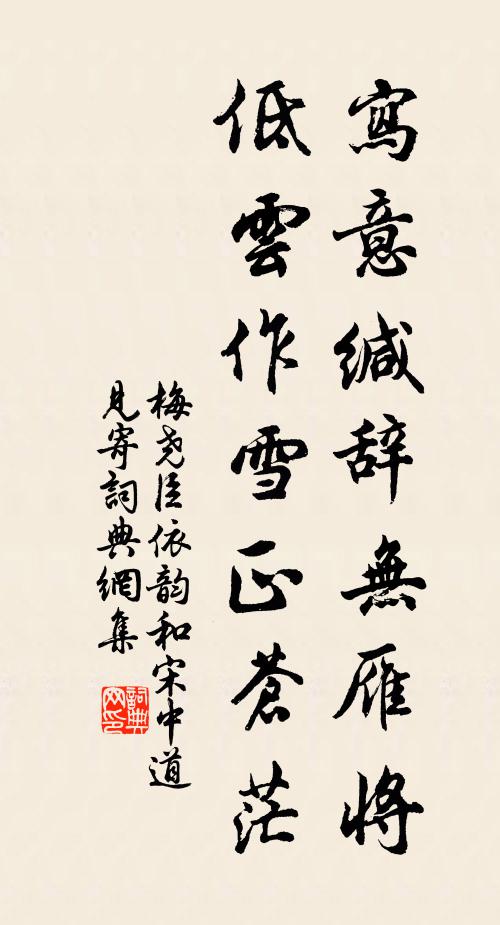 寫意緘辞無雁將
低雲作雪正蒼茫
梅堯臣依韵和宋中道
見寄詞典網集
詞典
网印